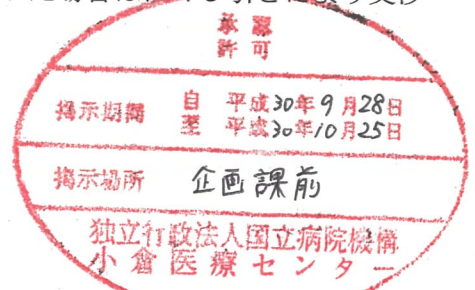 承認
許可
掲示期間 自 平成30年9月28日
至 平成30年10月25日
掲示場所 企画課前
独立行政法人国立病院機構
小倉医療センター